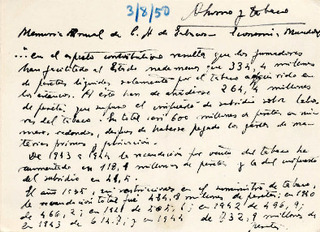 3/8/50 Ahorro y tabaco
Memoria Anual de C. A. de Tabacos Economía Mundial
... En el aspecto contributivo resulta que los fumadores
han facilitado al Estado nada menos que 334,4 millones
de pesetas líquidas, solamente por el tabaco adquirido en
los estancos. A esto han de añadirse 264,4 millones
de pesetas, que supuso el impuesto de subsidio sobre labo-
res del tabaco. En total casi 600 millones de pesetas en nú-
meros redondos, después de haberse pagado los gastos de ma-
terias primas y fabricación.
De 1943 a 1944 la recaudación por venta del tabaco ha
aumentado en 118,9 millones de pesetas y la del impuesto
del subsidio en 48,5.
El año 1935, sin restricciones en el suministro de tabaco,
la recaudación total fué 484,8 millones de pesetas; en 1940
de 466,2; en 1941 de 505,6; en 1942 de 496,9;
en 1943 de 614,7; y en 1944 de 732,9 millones de
pesetas.